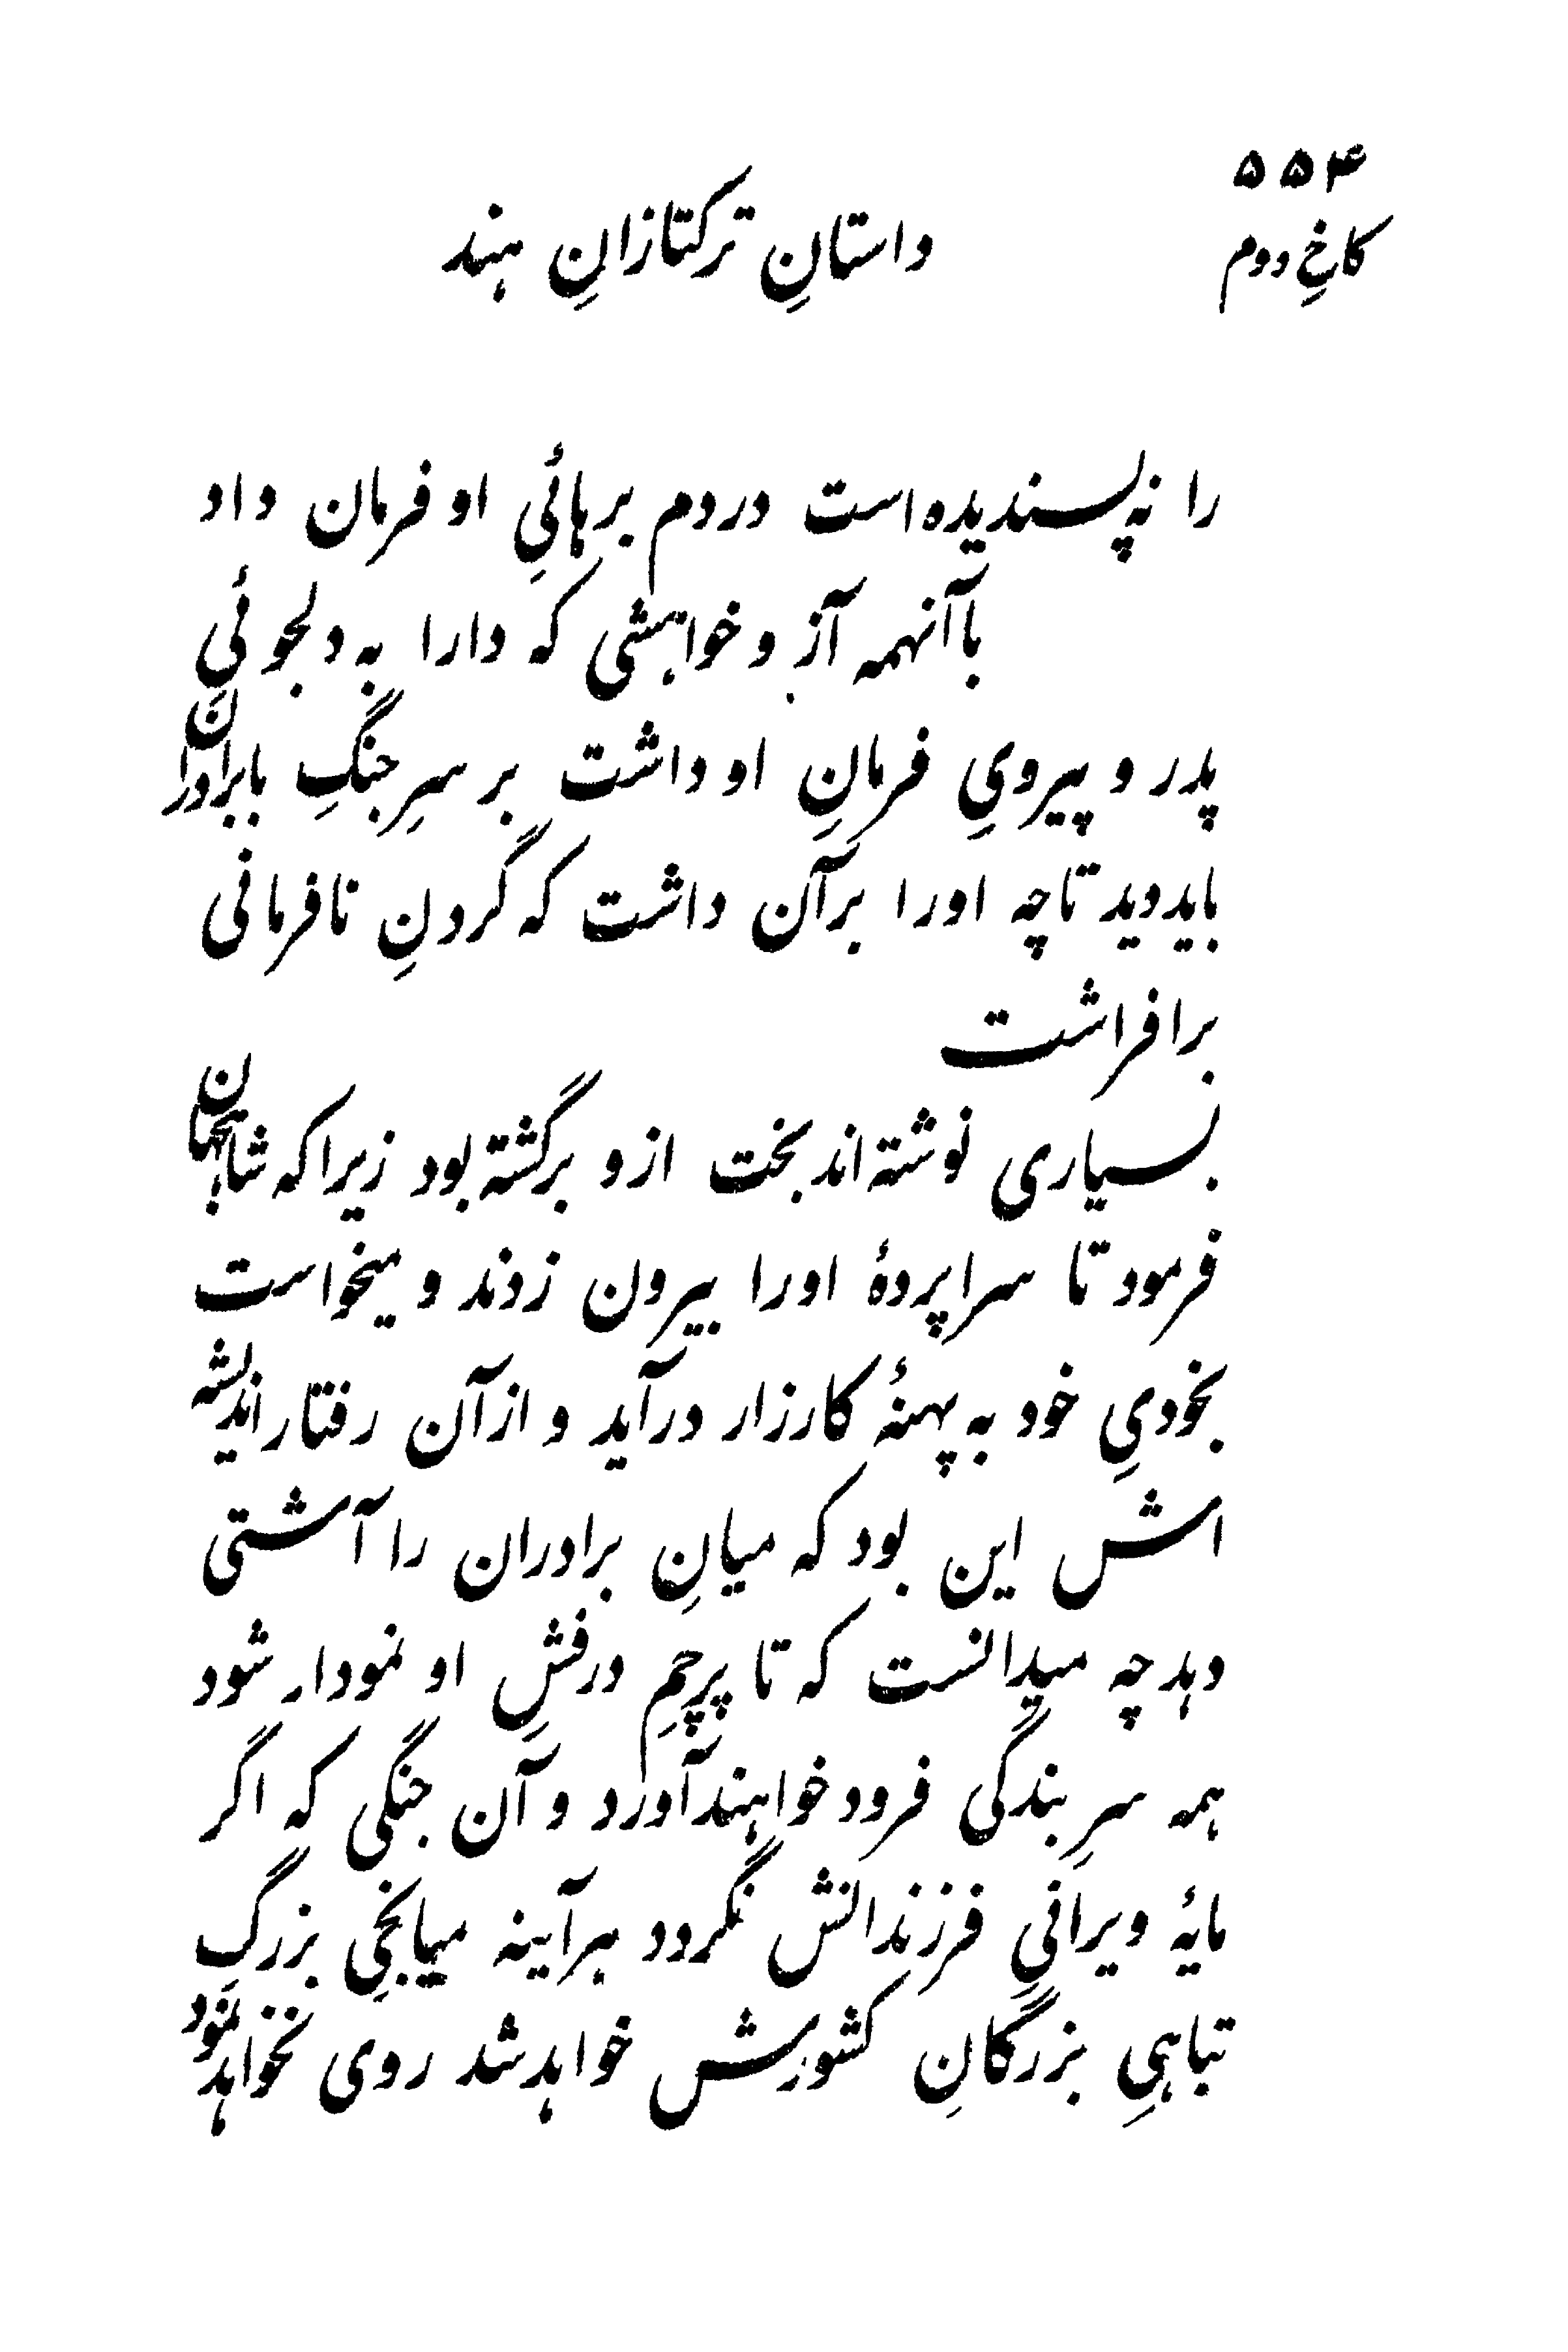 ۵۵۴
کاخِ دوم
داستانِ ترکتازانِ هند
را نه پسندیده است در دم برهائیِ او فرمان داد
با آنهمه آز و خواهشی که دارا به دلجوئیِ
پدر و پیرویِ فرمانِ او داشت بر سرِ جنگِ با برادران
باید دید تا چه او را برآن داشت که گردنِ نافرمانی
برافراشت
بسیاری نوشته‌اند بخت ازو برگشته بود زیرا که شاهجهان
فرمود تا سراپردهٔ او را بیرون زدند و میخواست
بخودیِ خود به پهنهٔ کارزار درآید و از آن رفتار اندیشه
اش این بود که میانِ برادران را آشتی
دهد چه میدانست که تا پرچمِ درفشِ او نمودار شود
همه سرِ بندگی فرود خواهند آورد و آن جنگی که اگر
مایهٔ ویرانیِ فرزندانش نگردد هرآینه میانجیِ بزرگِ
تباهیِ بزرگانِ کشورش خواهد شد روی نخواهد نمود